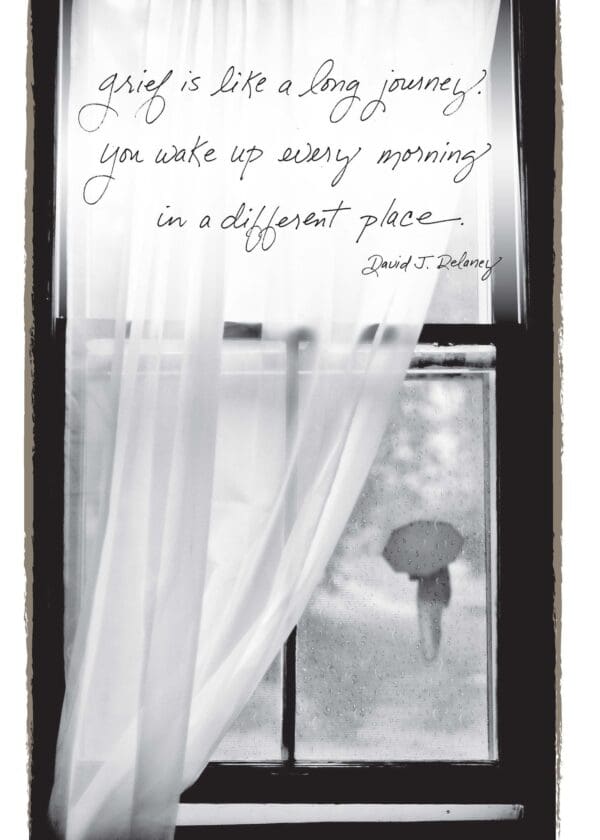 grief is like a long journey.
you wake up every morning
in a different place.
David J. Delaney